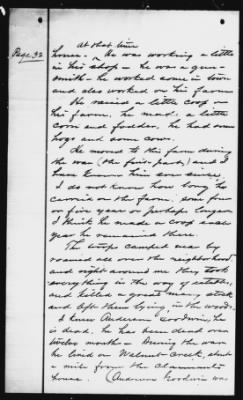 Page 32
At that time
house. He was working a little
in his shop - he was a gun-
smith - he worked some in town
and also worked on his farm
He raised a little crop on
his farm, he made a little
corn and fodder, he had some
hogs and some cows.
He moved to this farm during
the war (the first part) and I
have known him ever since,
I do not know how long he
carried on the farm, some four
or five year or perhaps longer
I think he made a crop each
year he remained there.
The troops camped near by
roamed all over the neighborhood
and right around me they took
everything in the way of eatables,
and killed a great many stock
and left them lying in the woods.
I knew Anderson Goodwin, he
is dead, he has been dead over
twelve months - During the war
he lived on Walnut Creek, about
a mile from the Claimants
house. (Anderson Goodwin was